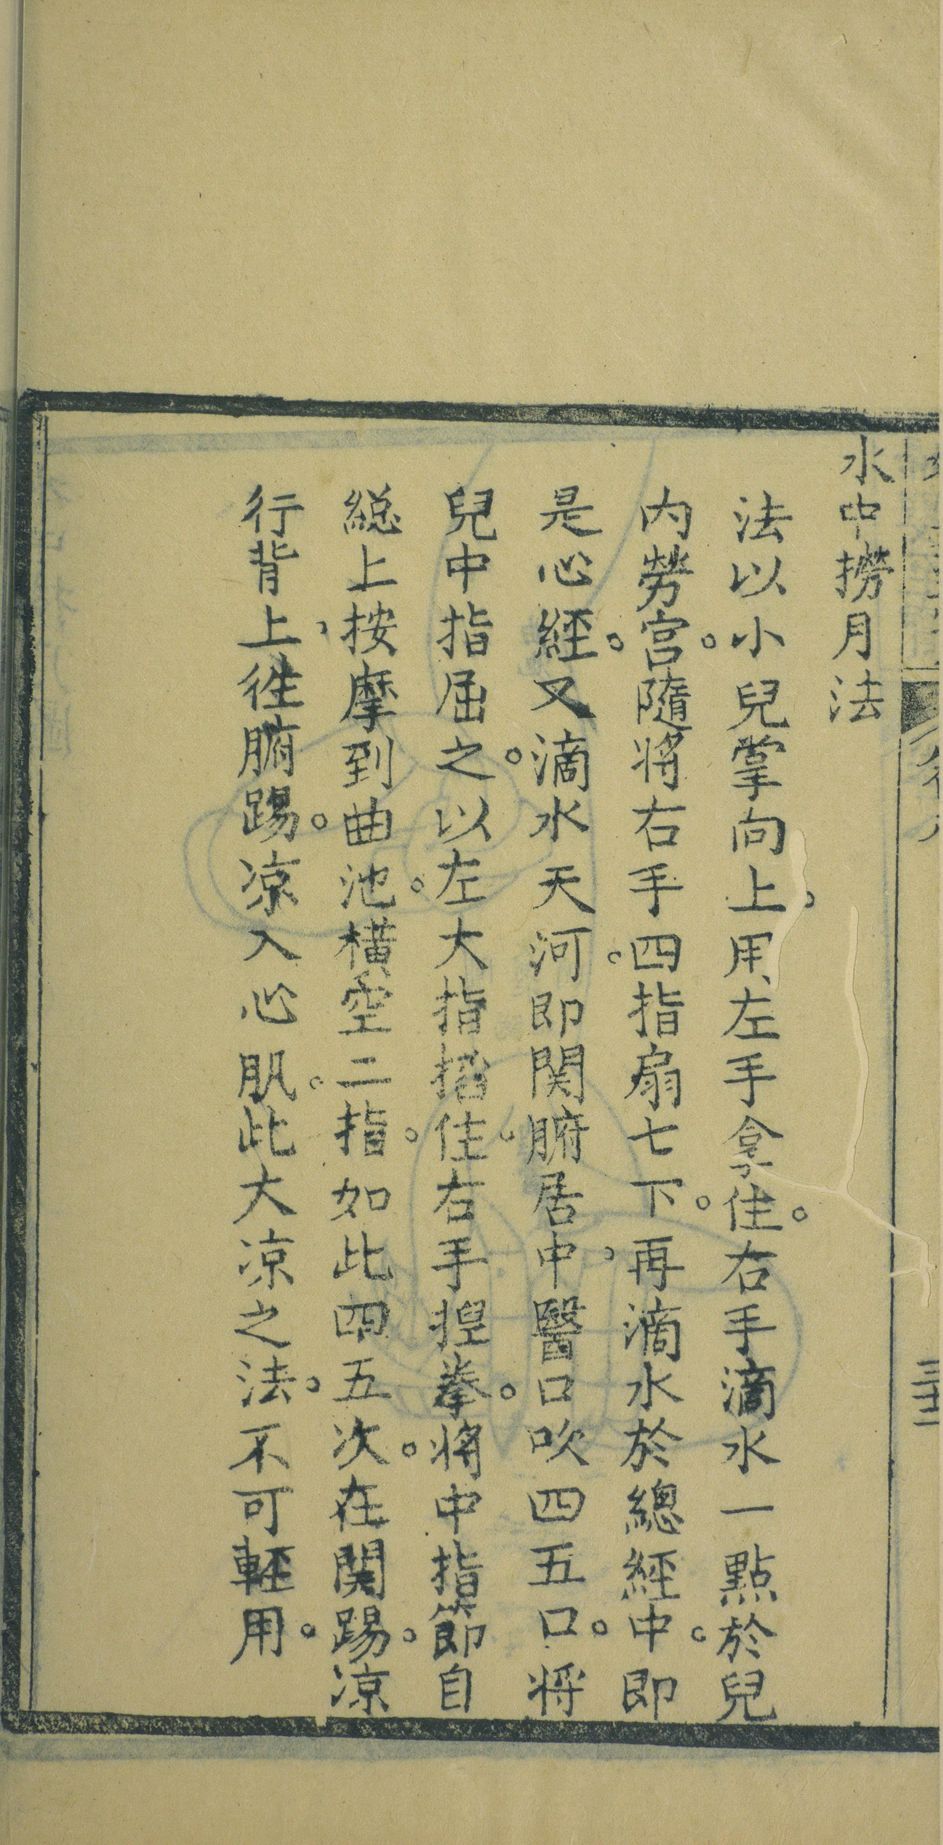 水中撈月法
法以小兒掌向上。用左手拿住。右手滴水一點於兒
内勞宮。隨將右手四指扇七下。再滴水於總經中。即
是心經。又滴水天河。即関腑居中。醫口吹四五口。將
兒中指屈之。以左大指掐住。右手捏拳。將中指節自
総上按摩到曲池。橫空二指。如此四五次。在関踢凉
行背上、徃腑踢。凉入心肌。此大凉之法。不可輕用。
三十二